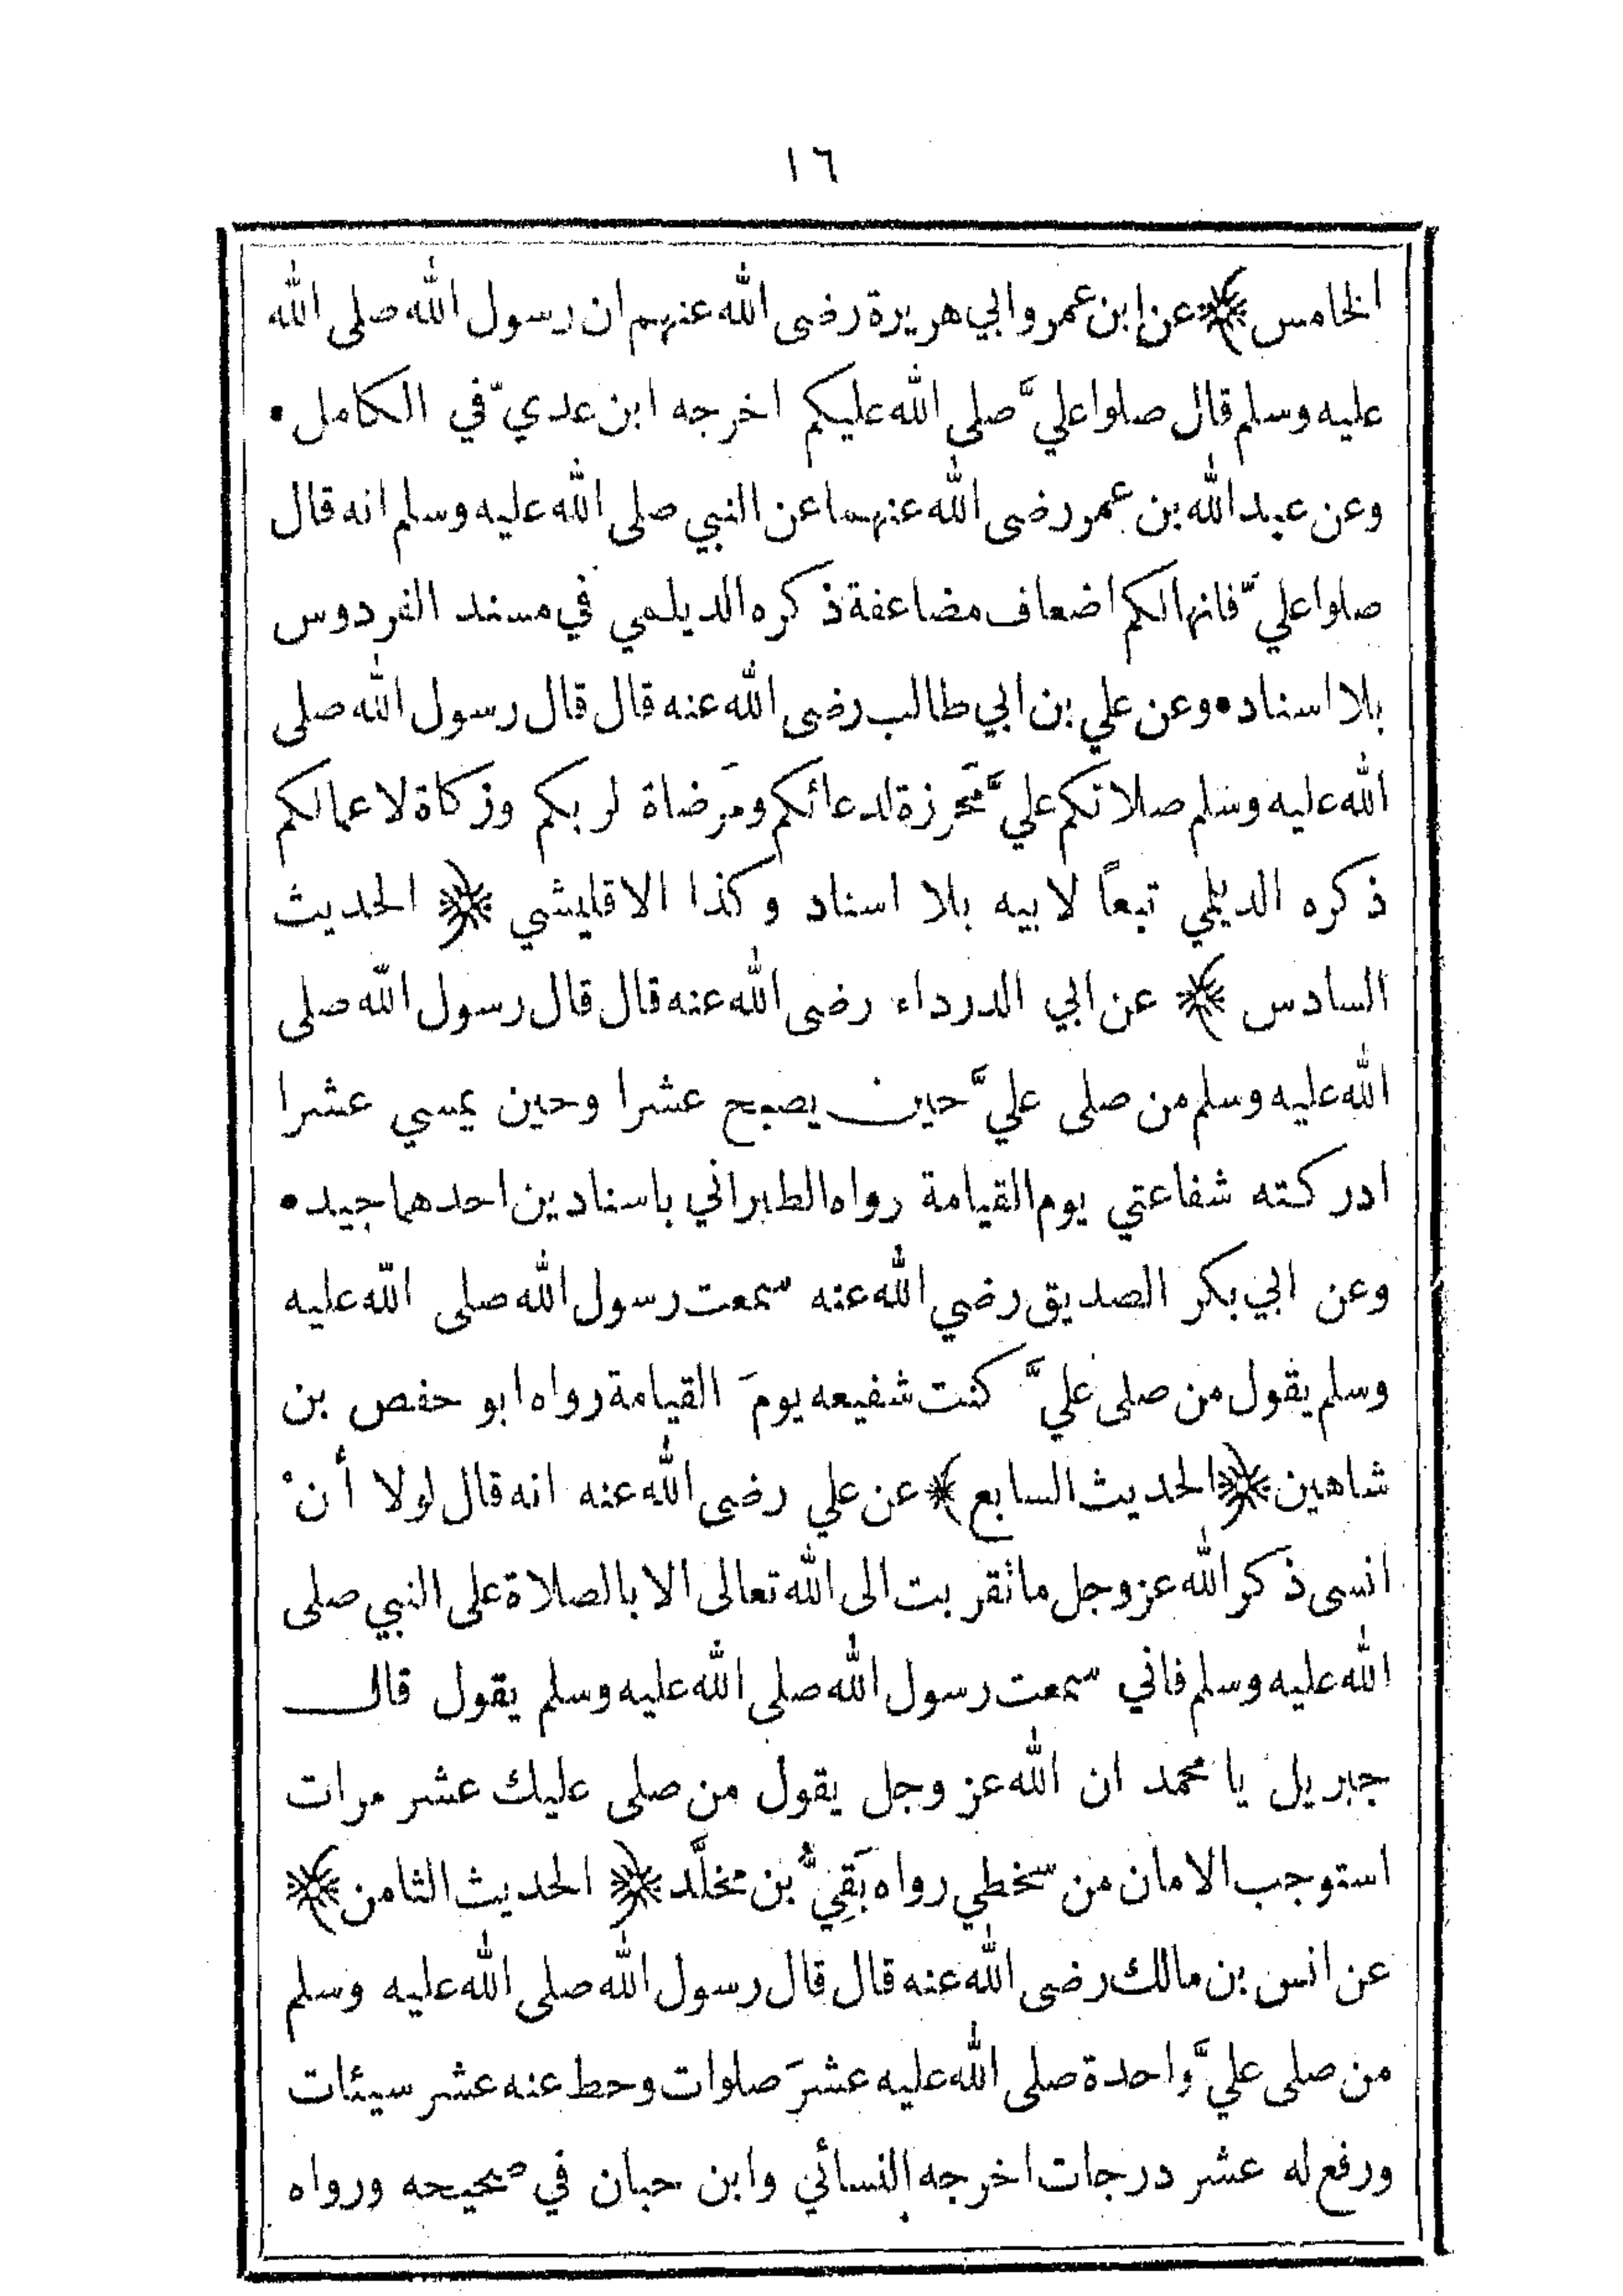 ١٦
الخامس ﴾ عن ابن عمر وابي هريرة رضى الله عنهم ان رسول الله صلى الله
عليه وسلم قال صلوا عليَّ صلى الله عليكم اخرجه ابن عديّ في الكامل •
وعن عبد الله بن عمر رضى الله عنهما عن النبي صلى الله عليه وسلم انه قال
صلوا عليّ فانها لكم اضعاف مضاعفة ذكره الديلمي في مسند الفردوس
بلا اسناد • وعن علي بن ابي طالب رضى الله عنه قال قال رسول الله صلى
الله عليه وسلم صلاتكم عليَّ مَحرزة لدعائكم ومَرضاة لربكم وزكاة لاعمالكم
ذكره الديلمي تبعاً لابيه بلا اسناد وكذا الاقليشي ﴿ الحديث
السادس ﴾ عن ابي الدرداء رضى الله عنه قال قال رسول الله صلى
الله عليه وسلم من صلى عليَّ حين يصبح عشرا وحين يمسي عشرا
ادركته شفاعتي يوم القيامة رواه الطبراني باسنادين احدهما جيد •
وعن ابي بكر الصديق رضي الله عنه سمعت رسول الله صلى الله عليه
وسلم يقول من صلى عليَّ كنت شفيعه يومَ القيامة رواه ابو حفص بن
شاهين ﴿ الحديث السابع ﴾ عن علي رضى الله عنه انه قال لولا أنْ
انسى ذكر الله عز وجل ما تقربت الى الله تعالى الا بالصلاة على النبي صلى
الله عليه وسلم فاني سمعت رسول الله صلى الله عليه وسلم يقول قال
جبريل يا محمد ان الله عز وجل يقول من صلى عليك عشر مرات
استوجب الامان من سخطي رواه بَقِيُّ بن مخلَّد ﴿ الحديث الثامن ﴾
عن انس بن مالك رضى الله عنه قال قال رسول الله صلى الله عليه وسلم
من صلى عليَّ واحدة صلى الله عليه عشرَ صلوات وحط عنه عشر سيئات
ورفع له عشر درجات اخرجه النسائي وابن حبان في صحيحه ورواه